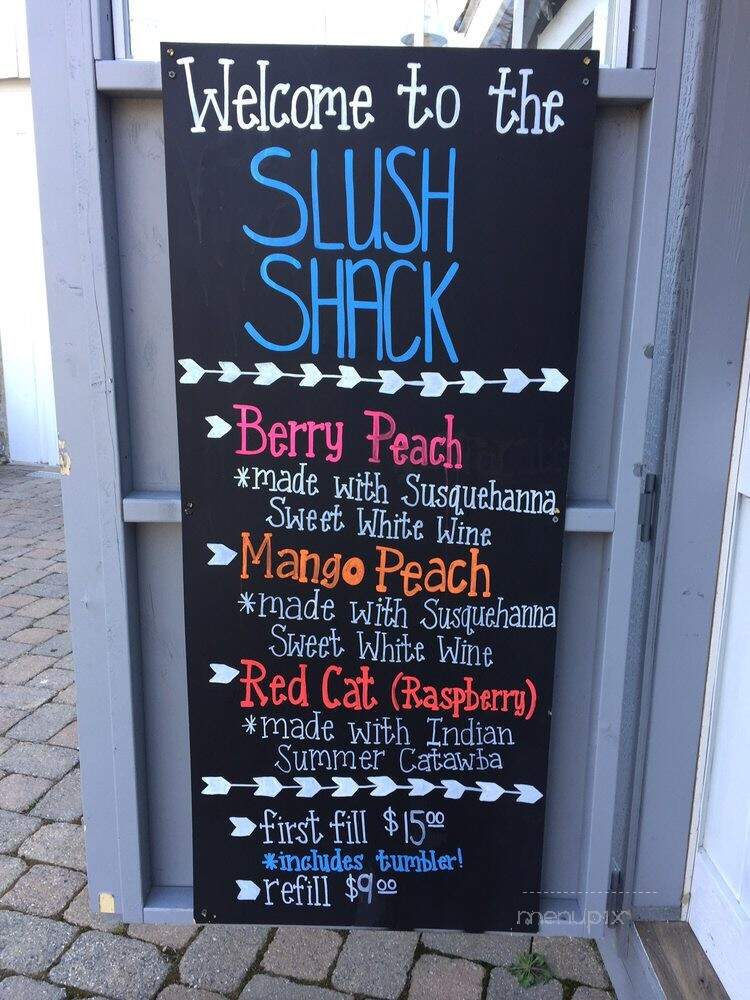 Welcome to the
SLUSH
SHACK
Berry Peach
*made with Susquehanna
Sweet White Wine
Mango Peach
*made with Susquehanna
Sweet White Wine
Red Cat (Raspberry)
*made with Indian
Summer Catawba
first fill $15.00
*includes tumbler!
refill $9.00
menupix